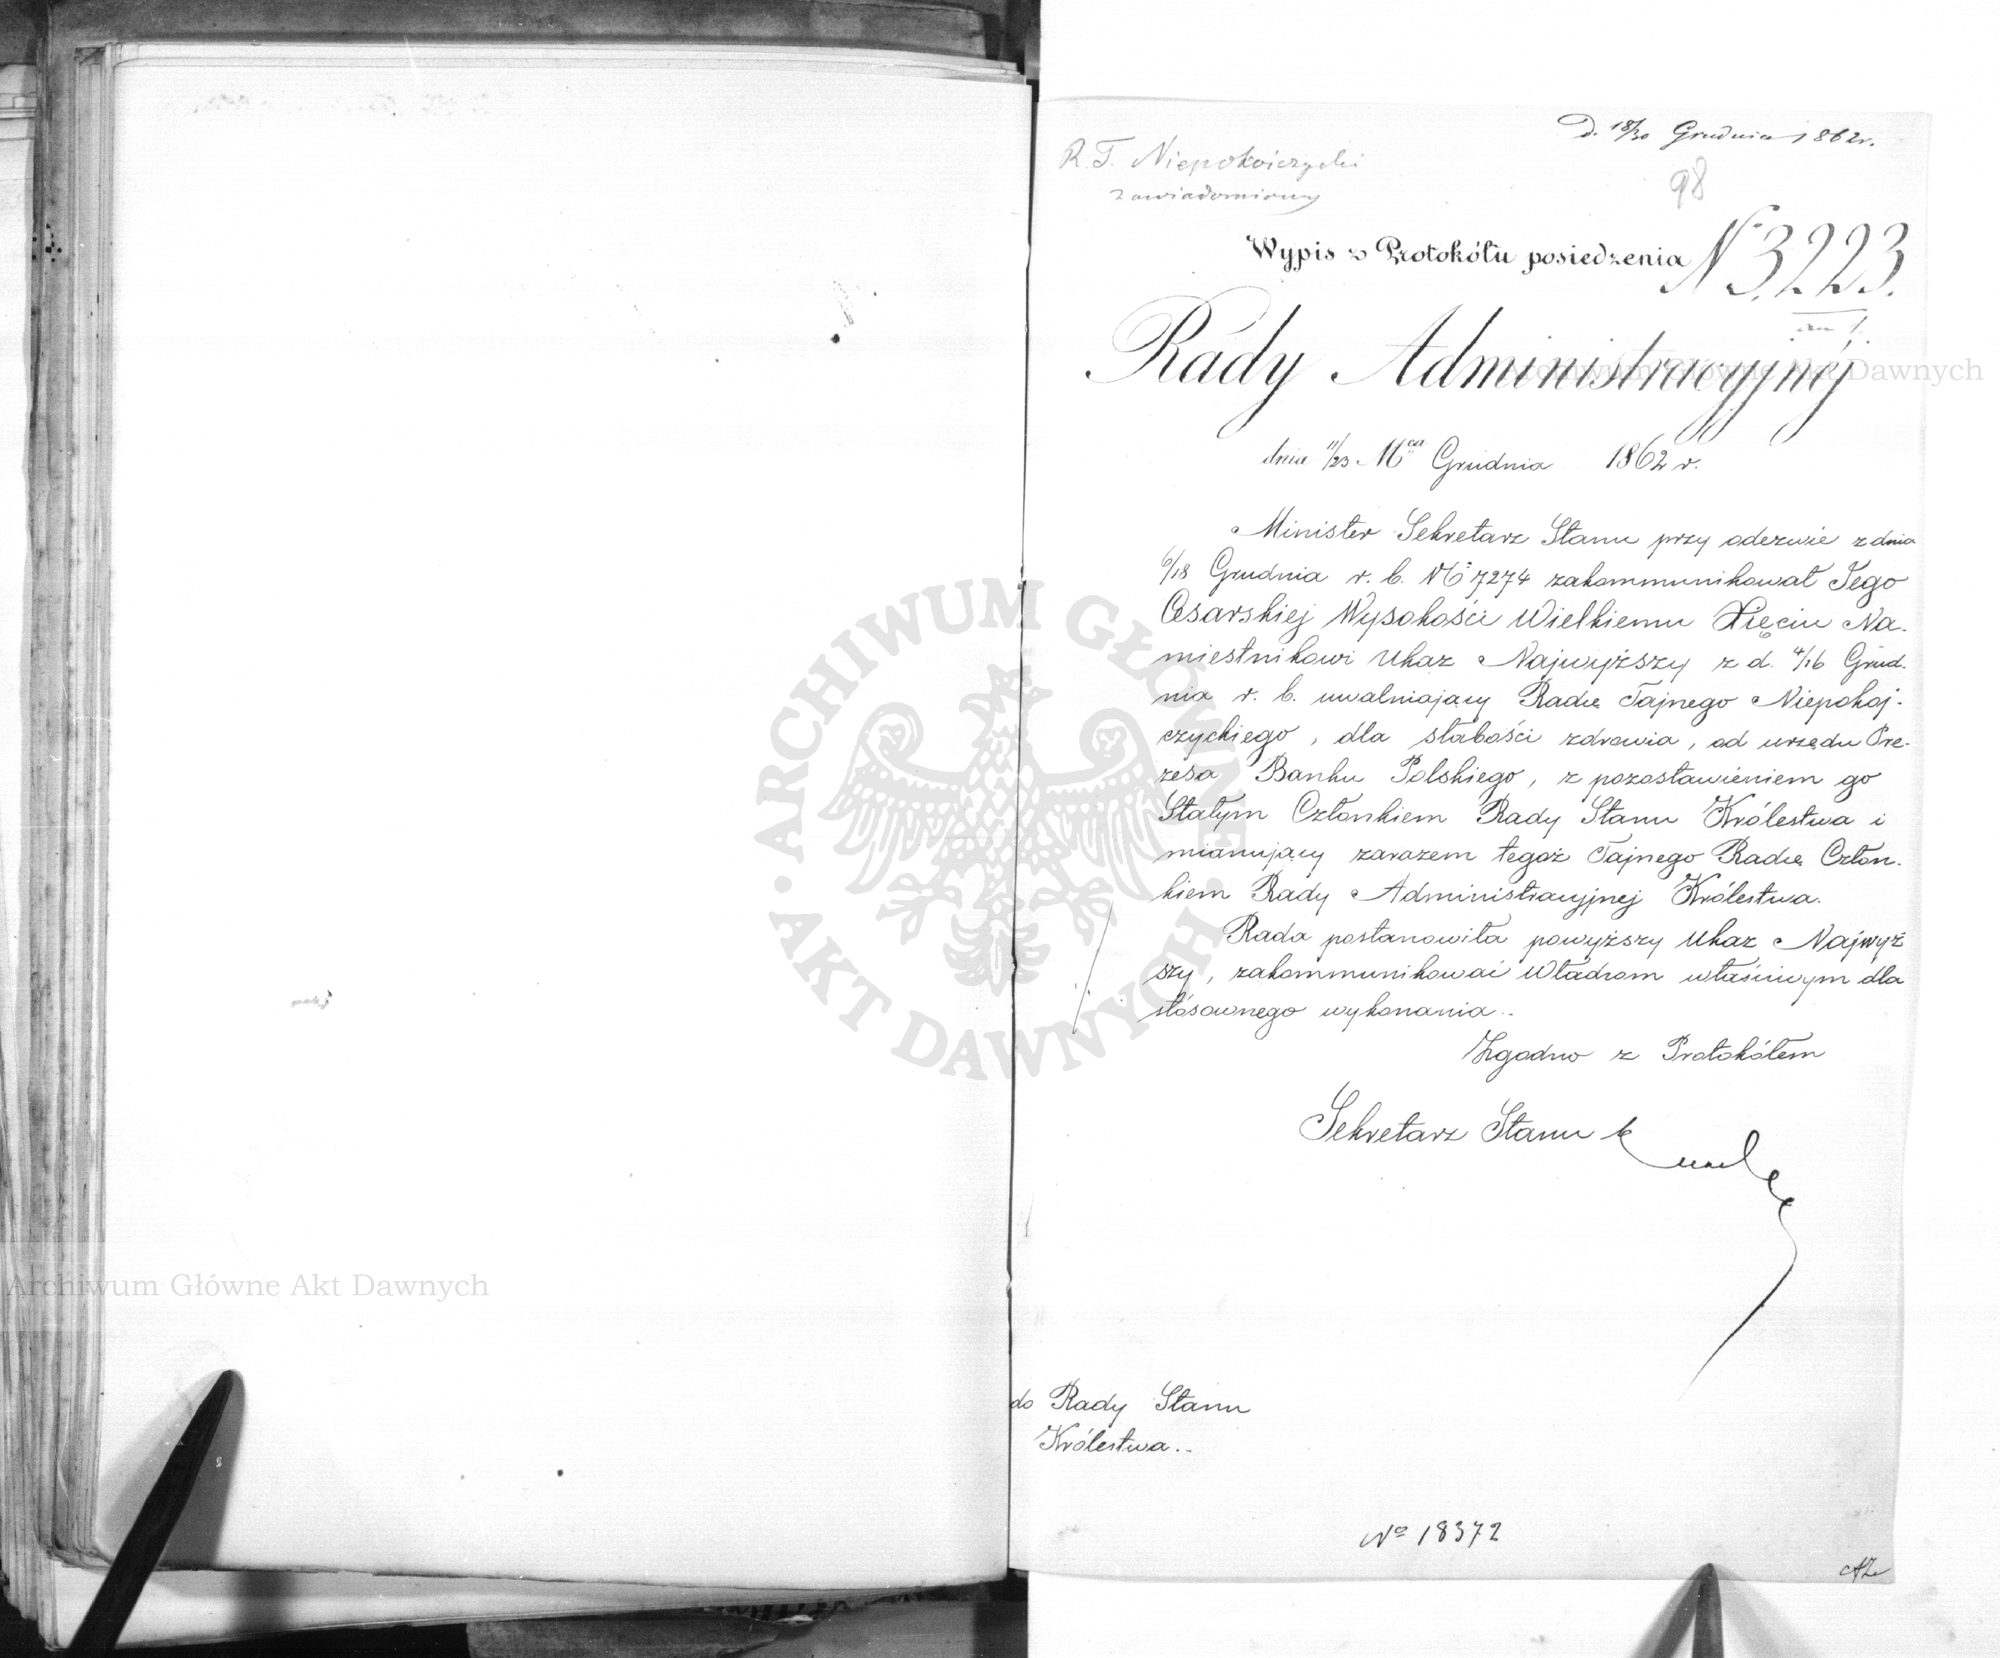 D. 18/30 Grudnia 1862r.
R. T. Niepokoiczycki
zawiadomiony
98
Wypis z Protokółu posiedzenia
No 3,223.
Rady Administracyjnéj
dnia 11/23 Mca Grudnia 1862 r.
Minister Sekretarz Stanu przy odezwie z dnia
6/18 Grudnia r. b. No 7274 zakommunikował Jego
Cesarskiej Wysokości Wielkiemu Xięciu Na-
miestnikowi Ukaz Najwyższy z d. 4/16 Grud-
nia r. b. uwalniający Radcę Tajnego Niepokoj-
czyckiego, dla słabości zdrowia, od urzędu Pre-
zesa Banku Polskiego, z pozostawieniem go
Stałym Członkiem Rady Stanu Królestwa i
mianujący zarazem tegoż Tajnego Radcę Człon-
kiem Rady Administracyjnej Królestwa.
Rada postanowiła powyższy Ukaz Najwyż
szy, zakommunikować Władzom właściwym dla
stósownego wykonania..
Zgodno z Protokółem
Sekretarz Stanu
do Rady Stanu
Królestwa..
No 18372
Archiwum Główne Akt Dawnych
Archiwum Główne Akt Dawnych
ARCHIWUM GŁÓWNE
AKT DAWNYCH